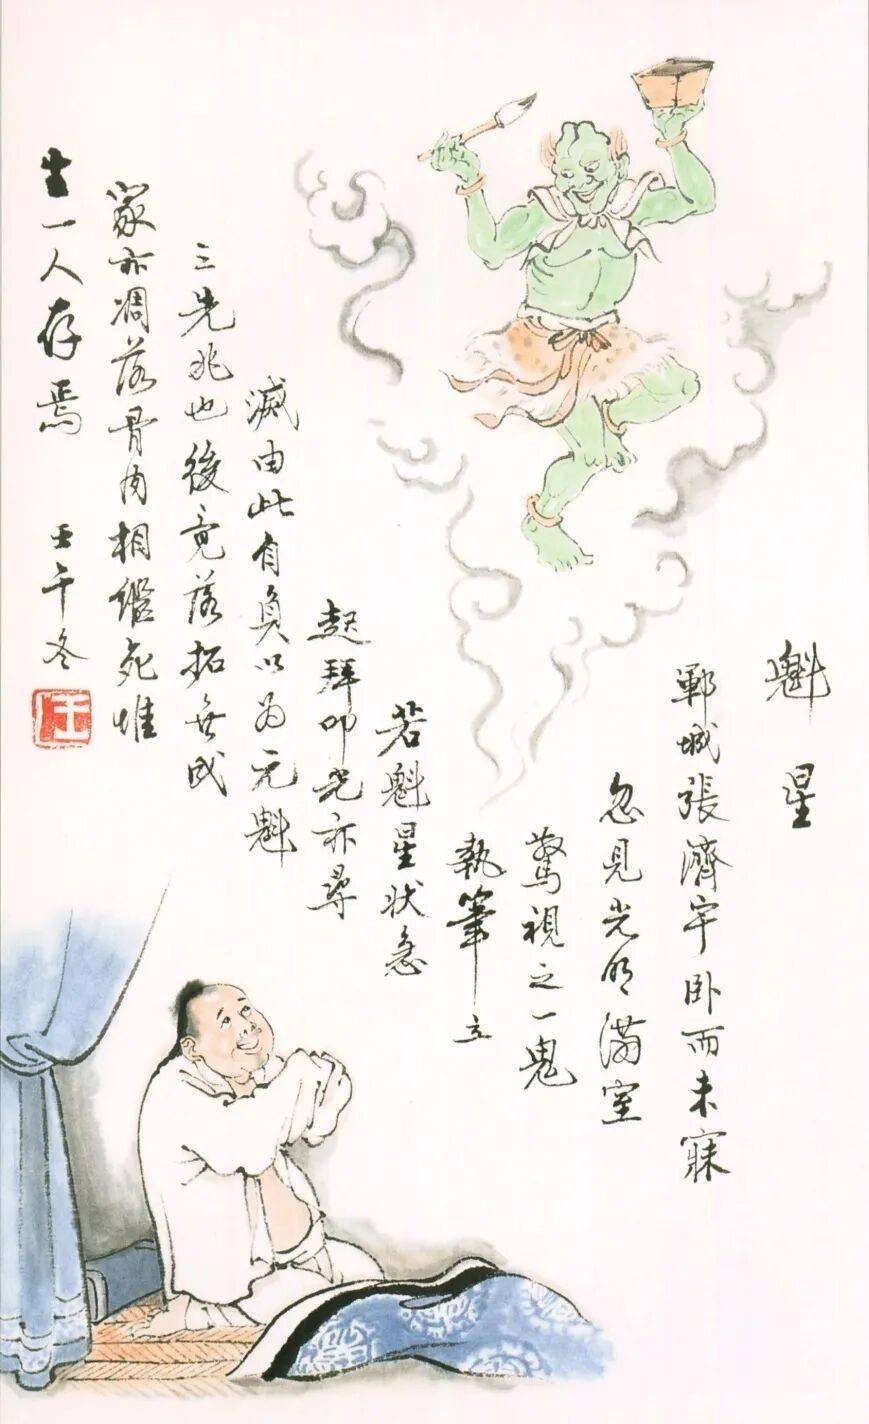 魁星
鄆城張濟宇卧而未寐
忽見光明滿室
驚視之一鬼
執筆立
若魁星狀急
起拜叩光亦尋
滅由此自負以為元魁
之先兆也後竟落拓無成
家亦凋落骨肉相繼死惟
生一人存焉 壬午冬
王